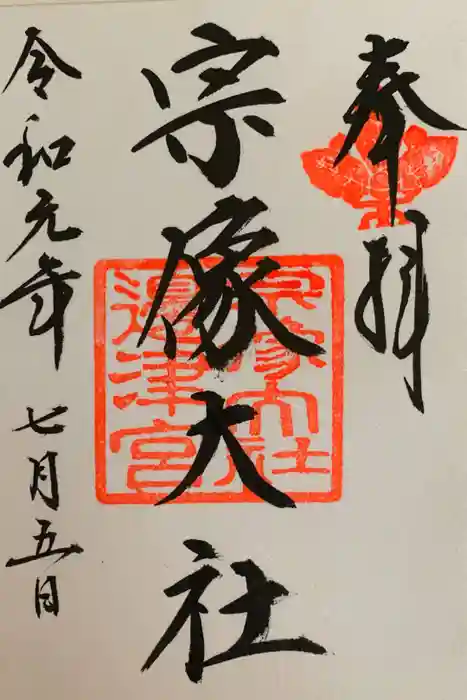 奉拝
宗像大社
宗像大社
邊津宮
令和元年七月五日